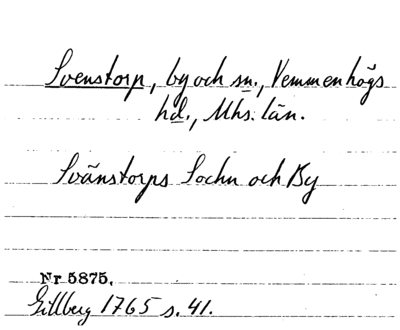 Svenstorp, by och sn., Vemmenhögs
hd., Mhs. län.
Svänstorps Sochn och By
Nr 5875.
Gillberg 1765 s. 41.